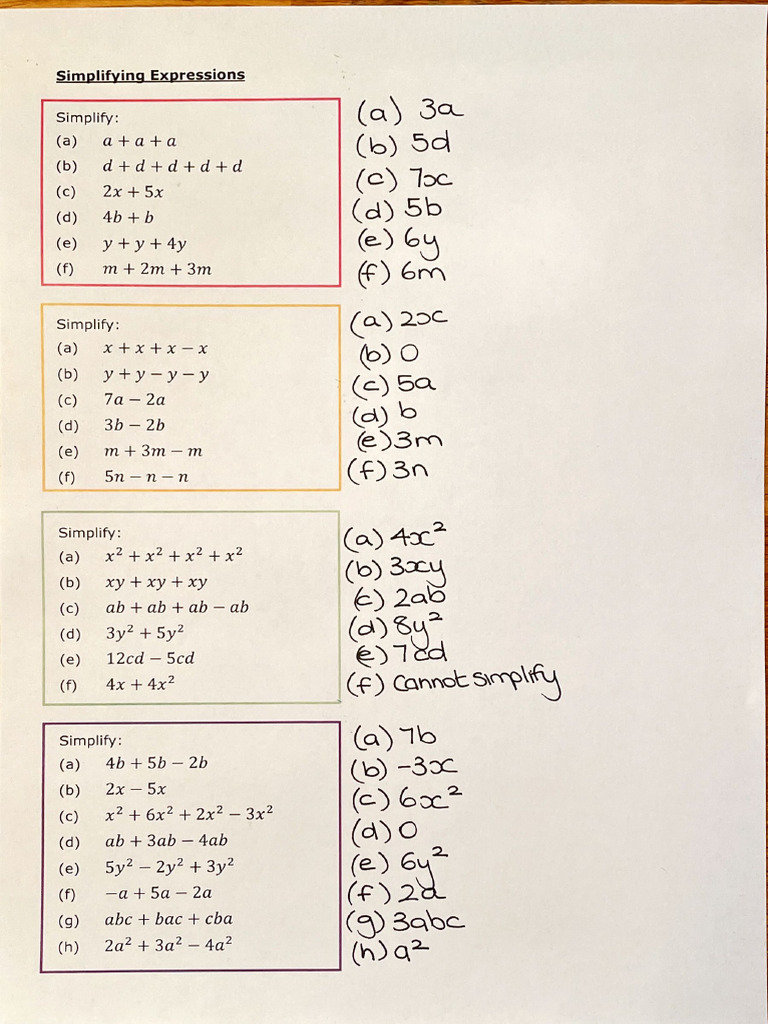 Simplifying Expressions
Simplify:
(a) a + a + a
(b) d + d + d + d + d
(c) 2x + 5x
(d) 4b + b
(e) y + y + 4y
(f) m + 2m + 3m
(a) 3a
(b) 5d
(c) 7x
(d) 5b
(e) 6y
(f) 6m
Simplify:
(a) x + x + x − x
(b) y + y − y − y
(c) 7a − 2a
(d) 3b − 2b
(e) m + 3m − m
(f) 5n − n − n
(a) 2x
(b) 0
(c) 5a
(d) b
(e) 3m
(f) 3n
Simplify:
(a) x² + x² + x² + x²
(b) xy + xy + xy
(c) ab + ab + ab − ab
(d) 3y² + 5y²
(e) 12cd − 5cd
(f) 4x + 4x²
(a) 4x²
(b) 3xy
(c) 2ab
(d) 8y²
(e) 7cd
(f) cannot simplify
Simplify:
(a) 4b + 5b − 2b
(b) 2x − 5x
(c) x² + 6x² + 2x² − 3x²
(d) ab + 3ab − 4ab
(e) 5y² − 2y² + 3y²
(f) −a + 5a − 2a
(g) abc + bac + cba
(h) 2a² + 3a² − 4a²
(a) 7b
(b) -3x
(c) 6x²
(d) 0
(e) 6y²
(f) 2a
(g) 3abc
(h) a²